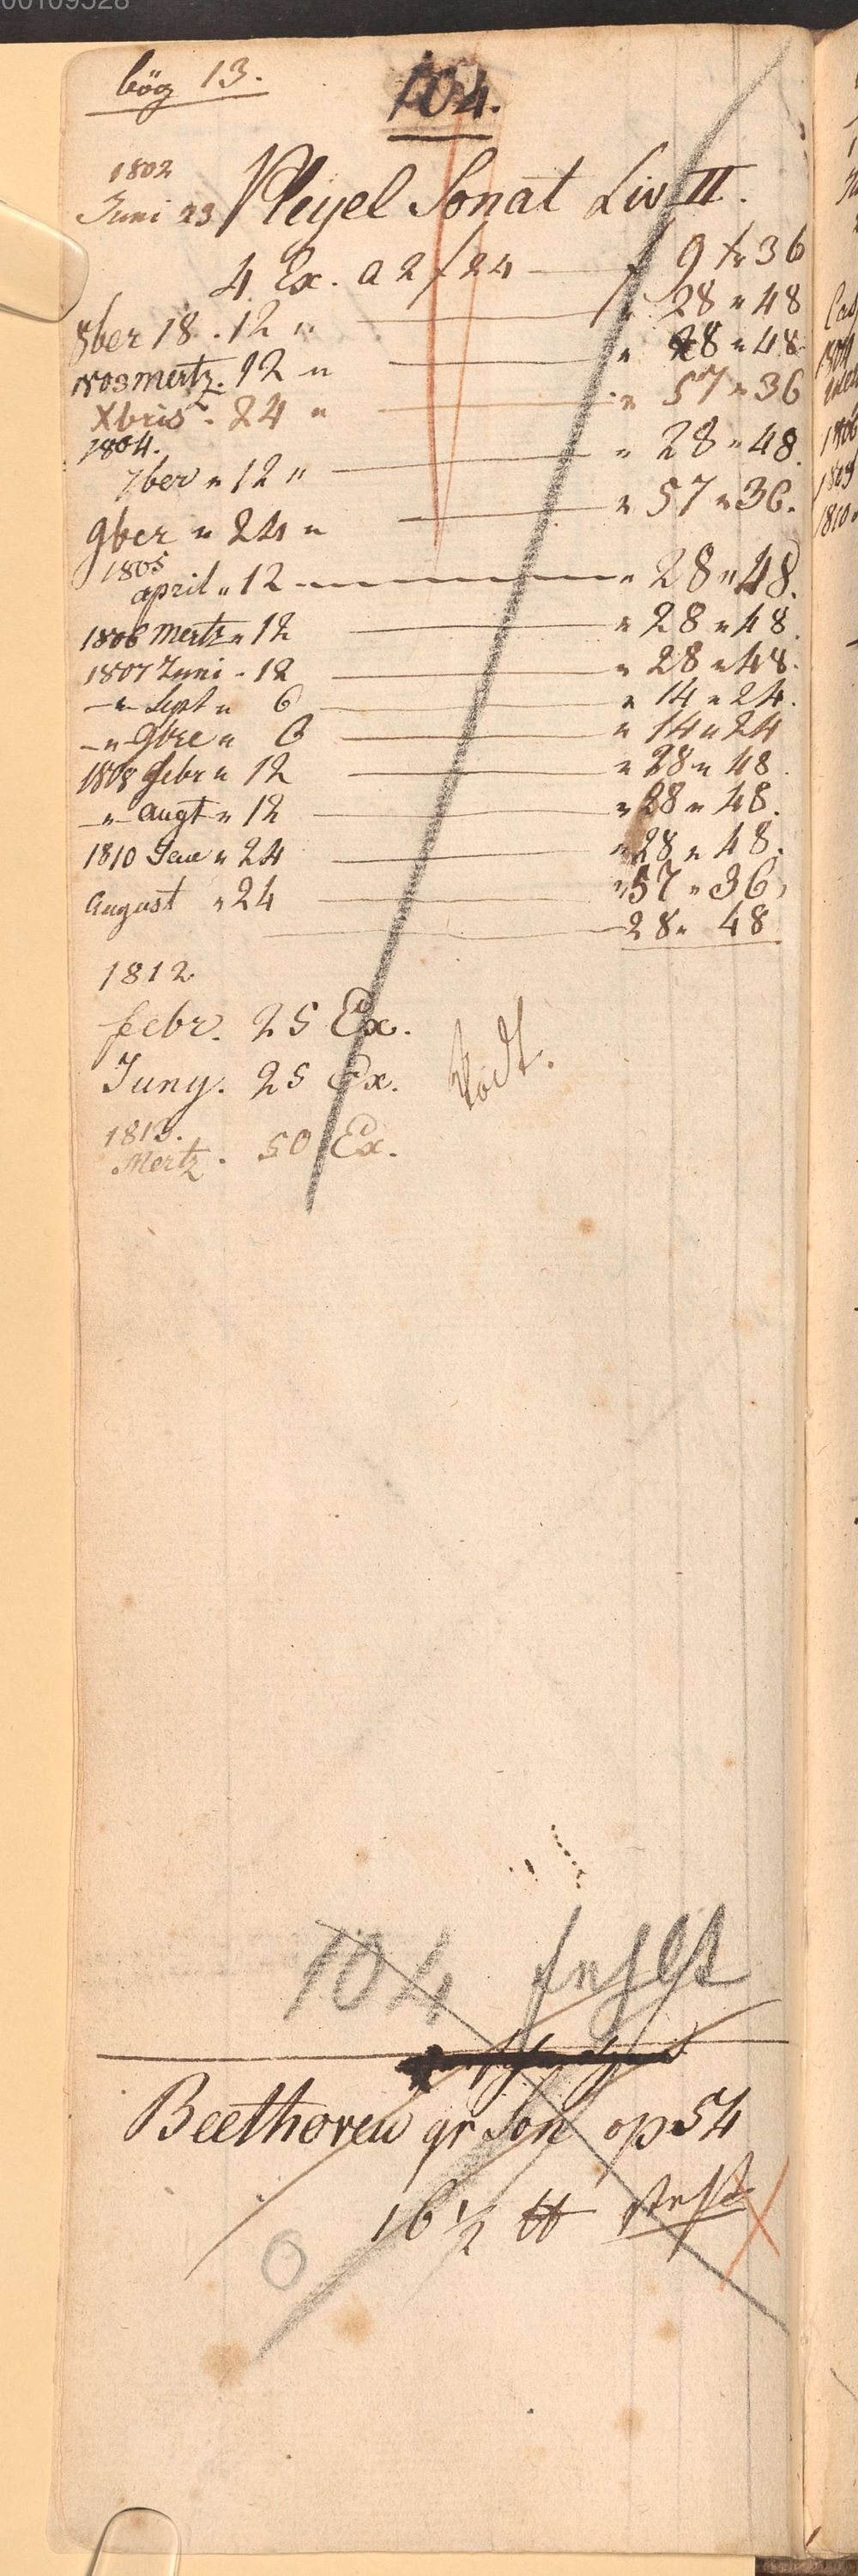 00109528
bög 13.
104.
1802
Juni 23 Pleyel Sonat Liv II.
4 Ex. a 2 f 24 — f 9 xr 36
8ber 18. 12 " — " 28 " 48
1803 Mertz. 12 " — " 28 " 48
Xbris. 24 " — " 57 " 36
1804.
7ber " 12 " — " 28 " 48.
9ber " 24 " — " 57 " 36.
1805
april " 12 — " 28 " 48.
1806 Mertz " 12 — " 28 " 48.
1807 Juni - 12 — " 28 " 48.
— " Sept " 6 — " 14 " 24.
— " 9bre " 6 — " 14 " 24
1808 febr " 12 — " 28 " 48.
— " augt " 12 — " 28 " 48.
1810 Jan " 24 — " 28 " 48.
August " 24 — " 57 " 36,
— 28 " 48
1812
febr. 25 Ex.
Juny. 25 Ex.
1813.
Mertz. 50 Ex.
104 fehlt
Beethoven gr Son op 54
16 1/2 ℔ Rest
0